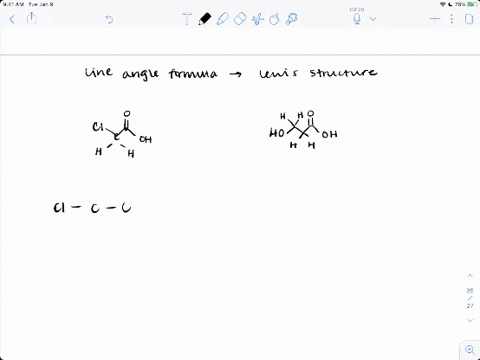 9:41 AM Tue Jan 8
03:28
78%
line angle formula → lewis structure
O
Cl
C
OH
H H
O
H H
HO
OH
H H
Cl - C - C
26
/
27